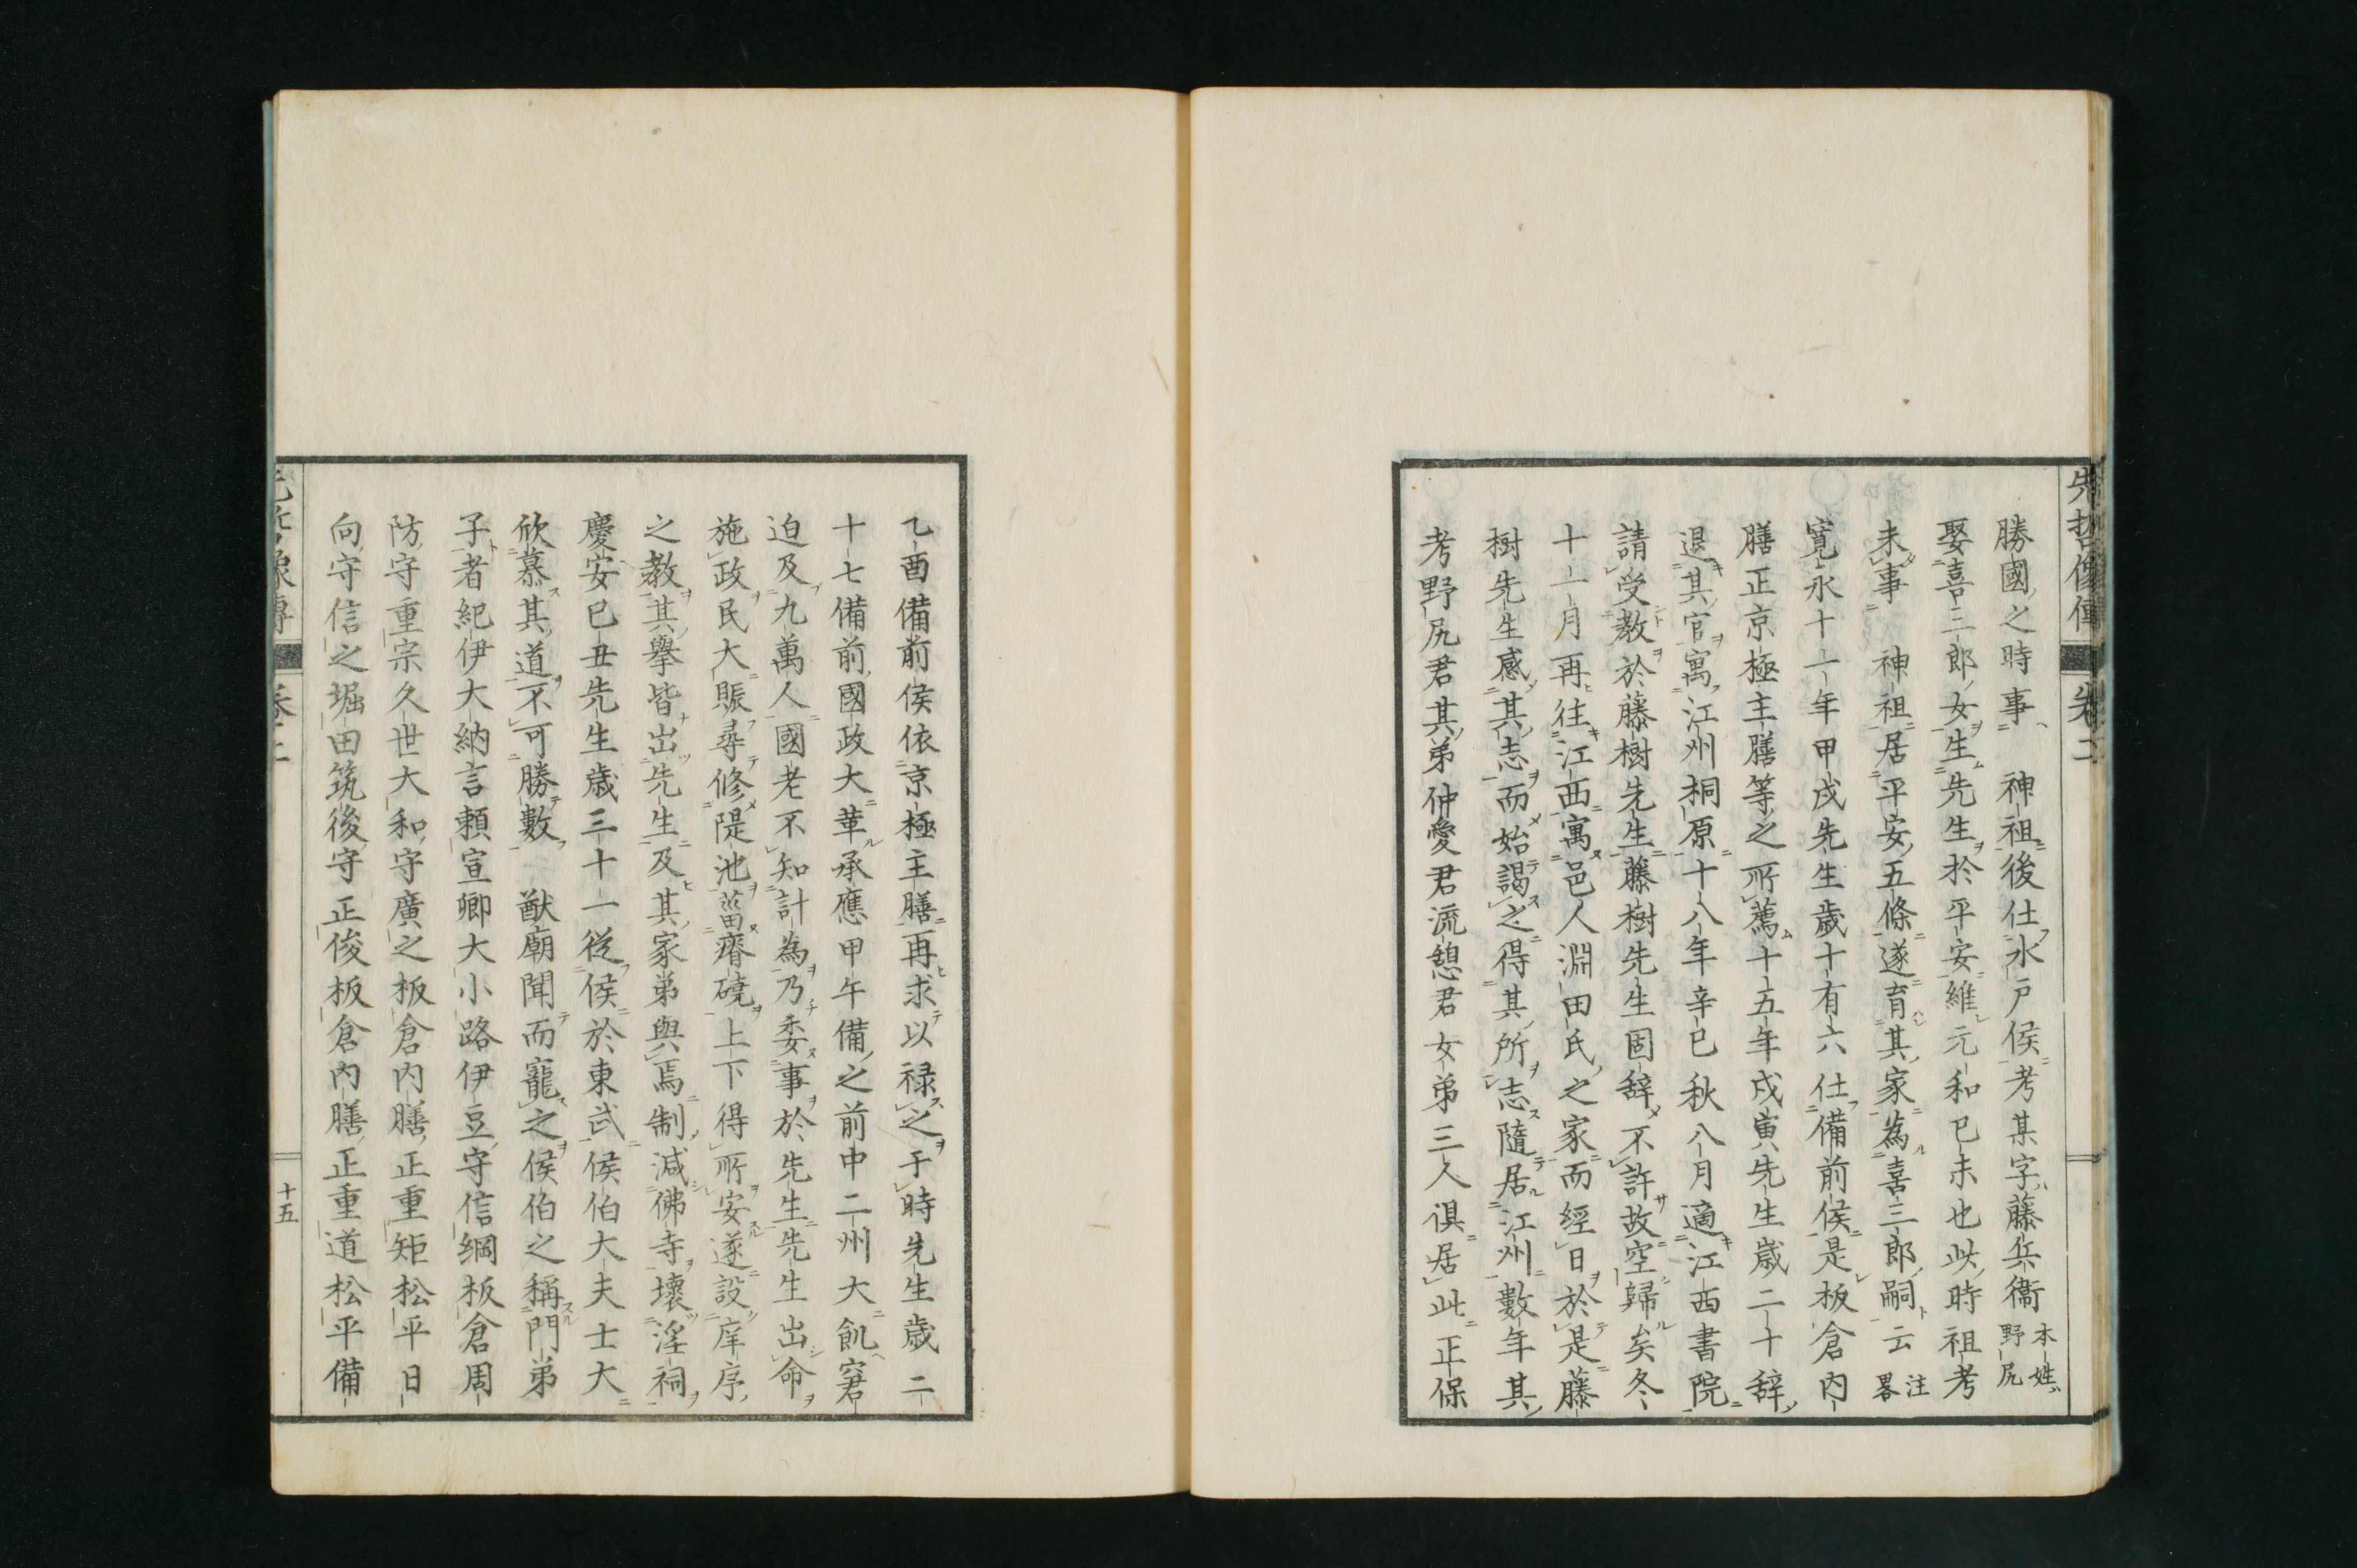 先哲像傳 卷二
勝國之時事 神祖後仕水戸侯考某字藤兵衞本姓野尻
娶喜三郎女生先生於平安維元和己未也此時祖考
未事 神祖居平安五條遂育其家為喜三郎嗣云注畧
寛永十一年甲戌先生歳十有六仕備前侯是板倉内
膳正京極主膳等之所薦十五年戊寅先生歳二十辭
退其官寓江州桐原十八年辛巳秋八月適江西書院
請受教於藤樹先生藤樹先生固辭不許故空歸矣冬
十一月再往江西寓邑人淵田氏之家而經日於是藤
樹先生感其志而始謁之得其所志隨居江州數年其
考野尻君其弟仲愛君流憩君女弟三人俱居此正保
乙酉備前侯依京極主膳再求以禄之于時先生歳二
十七備前國政大革承應甲午備之前中二州大飢窘
迫及九萬人國老不知計為乃委事於先生先生出命
施政民大賑尋修隄池菑瘠磽上下得所安遂設庠序
之教其擧皆出先生及其家弟與焉制減佛寺壞淫祠
慶安己丑先生歳三十一從侯於東武侯伯大夫士大
欣慕其道不可勝數 猷廟聞而寵之侯伯之稱門弟
子者紀伊大納言頼宣卿大小路伊豆守信綱板倉周
防守重宗久世大和守廣之板倉内膳正重矩松平日
向守信之堀田筑後守正俊板倉内膳正重道松平備
十五